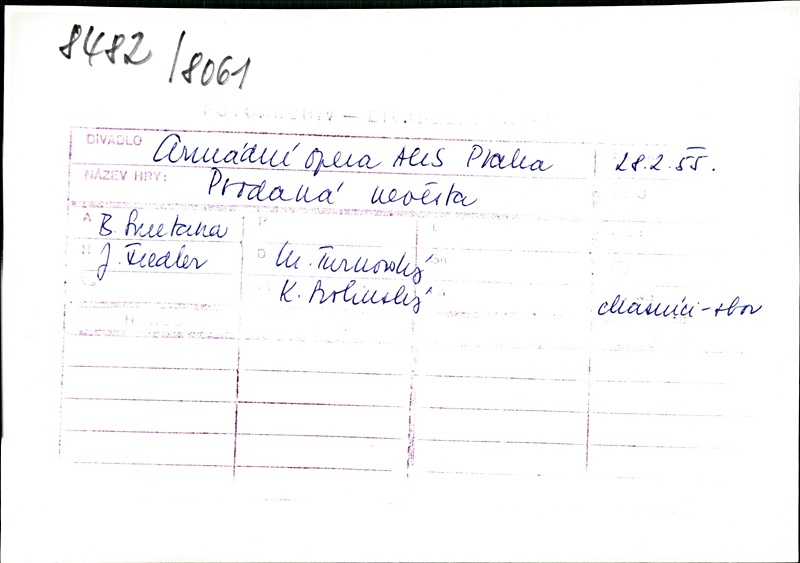 8482/8061
FOTOARCHIV –
DIVADLO Armádní opera AUS Praha 28.2.55.
NÁZEV HRY: Prodaná nevěsta
A B. Smetana
J. Fiedler D M. Turnovský
K.
-sbor